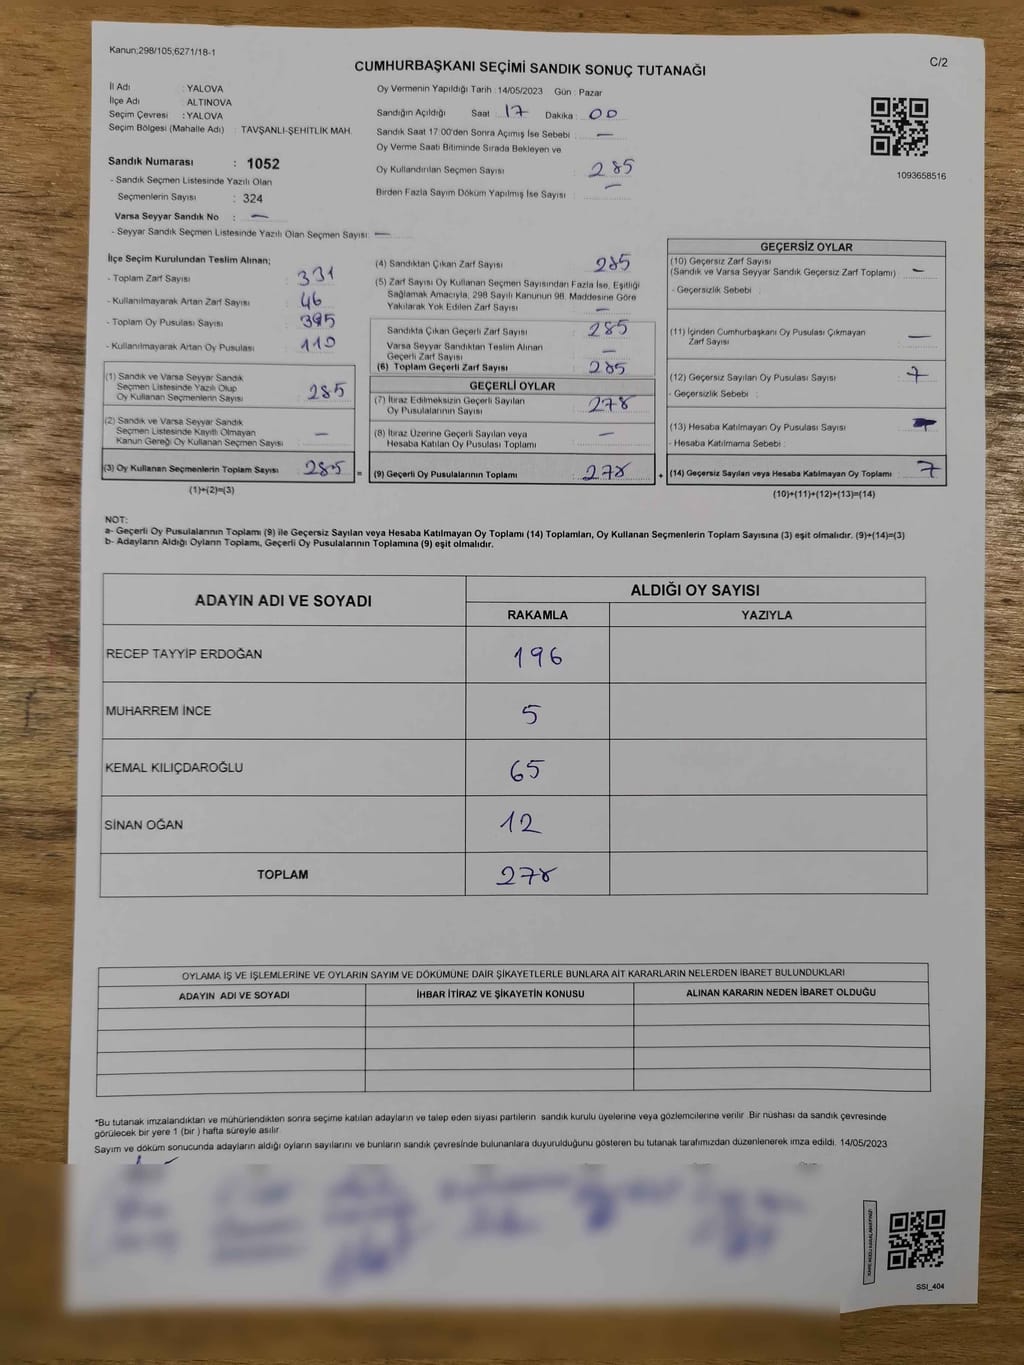 Kanun;298/105;6271/18-1
C/2
CUMHURBAŞKANI SEÇİMİ SANDIK SONUÇ TUTANAĞI
İl Adı : YALOVA
İlçe Adı : ALTINOVA
Seçim Çevresi : YALOVA
Seçim Bölgesi (Mahalle Adı) : TAVŞANLI-ŞEHİTLİK MAH.
Sandık Numarası : 1052
- Sandık Seçmen Listesinde Yazılı Olan
Seçmenlerin Sayısı : 324
Varsa Seyyar Sandık No : —
- Seyyar Sandık Seçmen Listesinde Yazılı Olan Seçmen Sayısı: —
Oy Vermenin Yapıldığı Tarih : 14/05/2023 Gün : Pazar
Sandığın Açıldığı Saat : 17 Dakika : 00
Sandık Saat 17.00'den Sonra Açımış İse Sebebi : —
Oy Verme Saati Bitiminde Sırada Bekleyen ve
Oy Kullandırılan Seçmen Sayısı : 285
Birden Fazla Sayım Döküm Yapılmış İse Sayısı : —
1093658516
İlçe Seçim Kurulundan Teslim Alınan;
- Toplam Zarf Sayısı : 331
- Kullanılmayarak Artan Zarf Sayısı : 46
- Toplam Oy Pusulası Sayısı : 395
- Kullanılmayarak Artan Oy Pusulası : 110
(1) Sandık ve Varsa Seyyar Sandık
Seçmen Listesinde Yazılı Olup
Oy Kullanan Seçmenlerin Sayısı : 285
(2) Sandık ve Varsa Seyyar Sandık
Seçmen Listesinde Kayıtlı Olmayan
Kanun Gereği Oy Kullanan Seçmen Sayısı : —
(3) Oy Kullanan Seçmenlerin Toplam Sayısı : 285 =
(1)+(2)=(3)
(4) Sandıktan Çıkan Zarf Sayısı : 285
(5) Zarf Sayısı Oy Kullanan Seçmen Sayısından Fazla İse, Eşitliği
Sağlamak Amacıyla, 298 Sayılı Kanunun 98. Maddesine Göre
Yakılarak Yok Edilen Zarf Sayısı : —
Sandıkta Çıkan Geçerli Zarf Sayısı : 285
Varsa Seyyar Sandıktan Teslim Alınan
Geçerli Zarf Sayısı : —
(6) Toplam Geçerli Zarf Sayısı : 285
GEÇERLİ OYLAR
(7) İtiraz Edilmeksizin Geçerli Sayılan
Oy Pusulalarının Sayısı : 278
(8) İtiraz Üzerine Geçerli Sayılan veya
Hesaba Katılan Oy Pusulası Toplamı : —
(9) Geçerli Oy Pusulalarının Toplamı : 278 +
GEÇERSİZ OYLAR
(10) Geçersiz Zarf Sayısı
(Sandık ve Varsa Seyyar Sandık Geçersiz Zarf Toplamı) : —
- Geçersizlik Sebebi :
(11) İçinden Cumhurbaşkanı Oy Pusulası Çıkmayan
Zarf Sayısı : —
(12) Geçersiz Sayılan Oy Pusulası Sayısı : 7
- Geçersizlik Sebebi :
(13) Hesaba Katılmayan Oy Pusulası Sayısı :
- Hesaba Katılmama Sebebi :
(14) Geçersiz Sayılan veya Hesaba Katılmayan Oy Toplamı : 7
(10)+(11)+(12)+(13)=(14)
NOT:
a- Geçerli Oy Pusulalarının Toplamı (9) ile Geçersiz Sayılan veya Hesaba Katılmayan Oy Toplamı (14) Toplamları, Oy Kullanan Seçmenlerin Toplam Sayısına (3) eşit olmalıdır. (9)+(14)=(3)
b- Adayların Aldığı Oyların Toplamı, Geçerli Oy Pusulalarının Toplamına (9) eşit olmalıdır.
ADAYIN ADI VE SOYADI ALDIĞI OY SAYISI
RAKAMLA YAZIYLA
RECEP TAYYİP ERDOĞAN 196
MUHARREM İNCE 5
KEMAL KILIÇDAROĞLU 65
SİNAN OĞAN 12
TOPLAM 278
OYLAMA İŞ VE İŞLEMLERİNE VE OYLARIN SAYIM VE DÖKÜMÜNE DAİR ŞİKAYETLERLE BUNLARA AİT KARARLARIN NELERDEN İBARET BULUNDUKLARI
ADAYIN ADI VE SOYADI İHBAR İTİRAZ VE ŞİKAYETİN KONUSU ALINAN KARARIN NEDEN İBARET OLDUĞU
*Bu tutanak imzalandıktan ve mühürlendikten sonra seçime katılan adayların ve talep eden siyasi partilerin sandık kurulu üyelerine veya gözlemcilerine verilir. Bir nüshası da sandık çevresinde
görülecek bir yere 1 (bir ) hafta süreyle asılır.
Sayım ve döküm sonucunda adayların aldığı oyların sayılarını ve bunların sandık çevresinde bulunanlara duyurulduğunu gösteren bu tutanak tarafımızdan düzenlenerek imza edildi. 14/05/2023
SSI_404